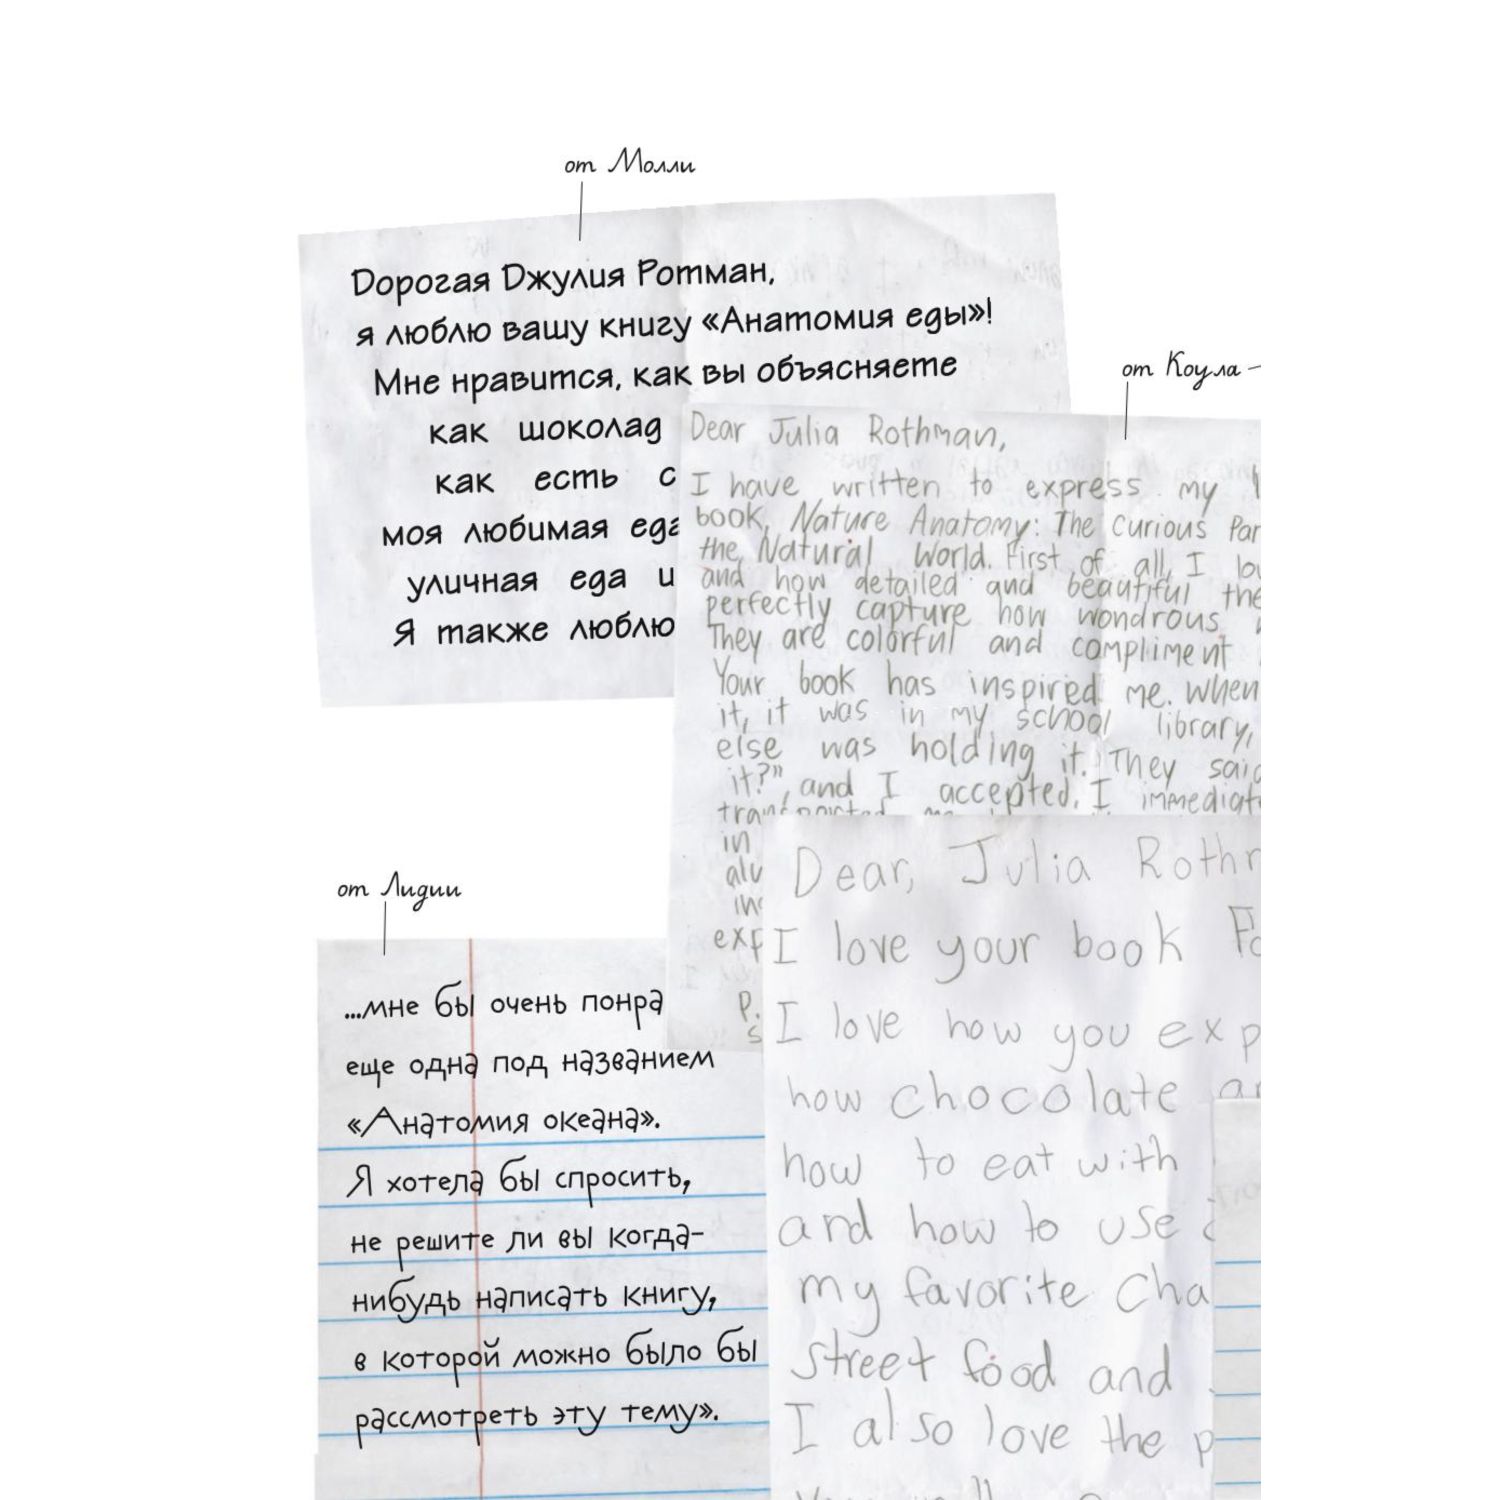 от Молли
Дорогая Джулия Ротман,
я люблю вашу книгу «Анатомия еды»!
Мне нравится, как вы объясняете
как шоколад
как есть с
моя любимая еда
уличная еда и
Я также люблю
от Коула
Dear Julia Rothman,
I have written to express my
book, Nature Anatomy: The Curious Par
the Natural World. First of all, I lo
and how detailed and beautiful the
perfectly capture how wondrous
They are colorful and compliment
Your book has inspired me. When
it, it was in my school library,
else was holding it. They said
it?", and I accepted. I immediat
in
alv
exp
P.
s
от Лидии
...мне бы очень понра
еще одна под названием
«Анатомия океана».
Я хотела бы спросить,
не решите ли вы когда-
нибудь написать книгу,
в которой можно было бы
рассмотреть эту тему».
Dear, Julia Rothr
I love your book Fo
I love how you exp
how chocolate ar
how to eat with
and how to use
my favorite cha
street food and
I also love the p